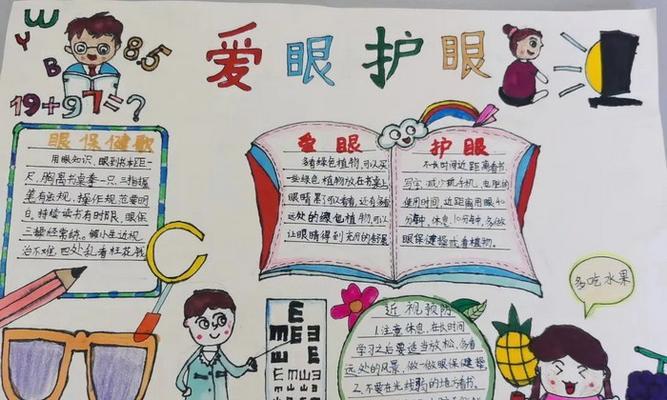 W
Y
B
85
19+97=?
爱眼护眼
眼保健歌
用眼知识,眼到书本距一
尺,胸离书桌要一只,三指握
笔有法规,操作规范要明
白,持续读书有时限,眼保
三操经常练,矫小生近视
治不难,四处乱看枉花钱
爱眼
多看绿色植物,可以买
一些绿色植物放在书桌上,
眼睛累了可以看看,还有多看
远处的绿色植物,可以
让眼睛得到充分的舒展
护眼
不长时间近距离看书、
写字,减少玩手机、电脑的
使用时间,近距离用眼40
分钟,休息10分钟,多做
眼保健操或看植物。
多吃水果
近视预防
1.注意休息,在长时间
学习之后要适当放松,多看
远处的风景,做一做眼保健操
2.不要在光线弱的地方看书。
E